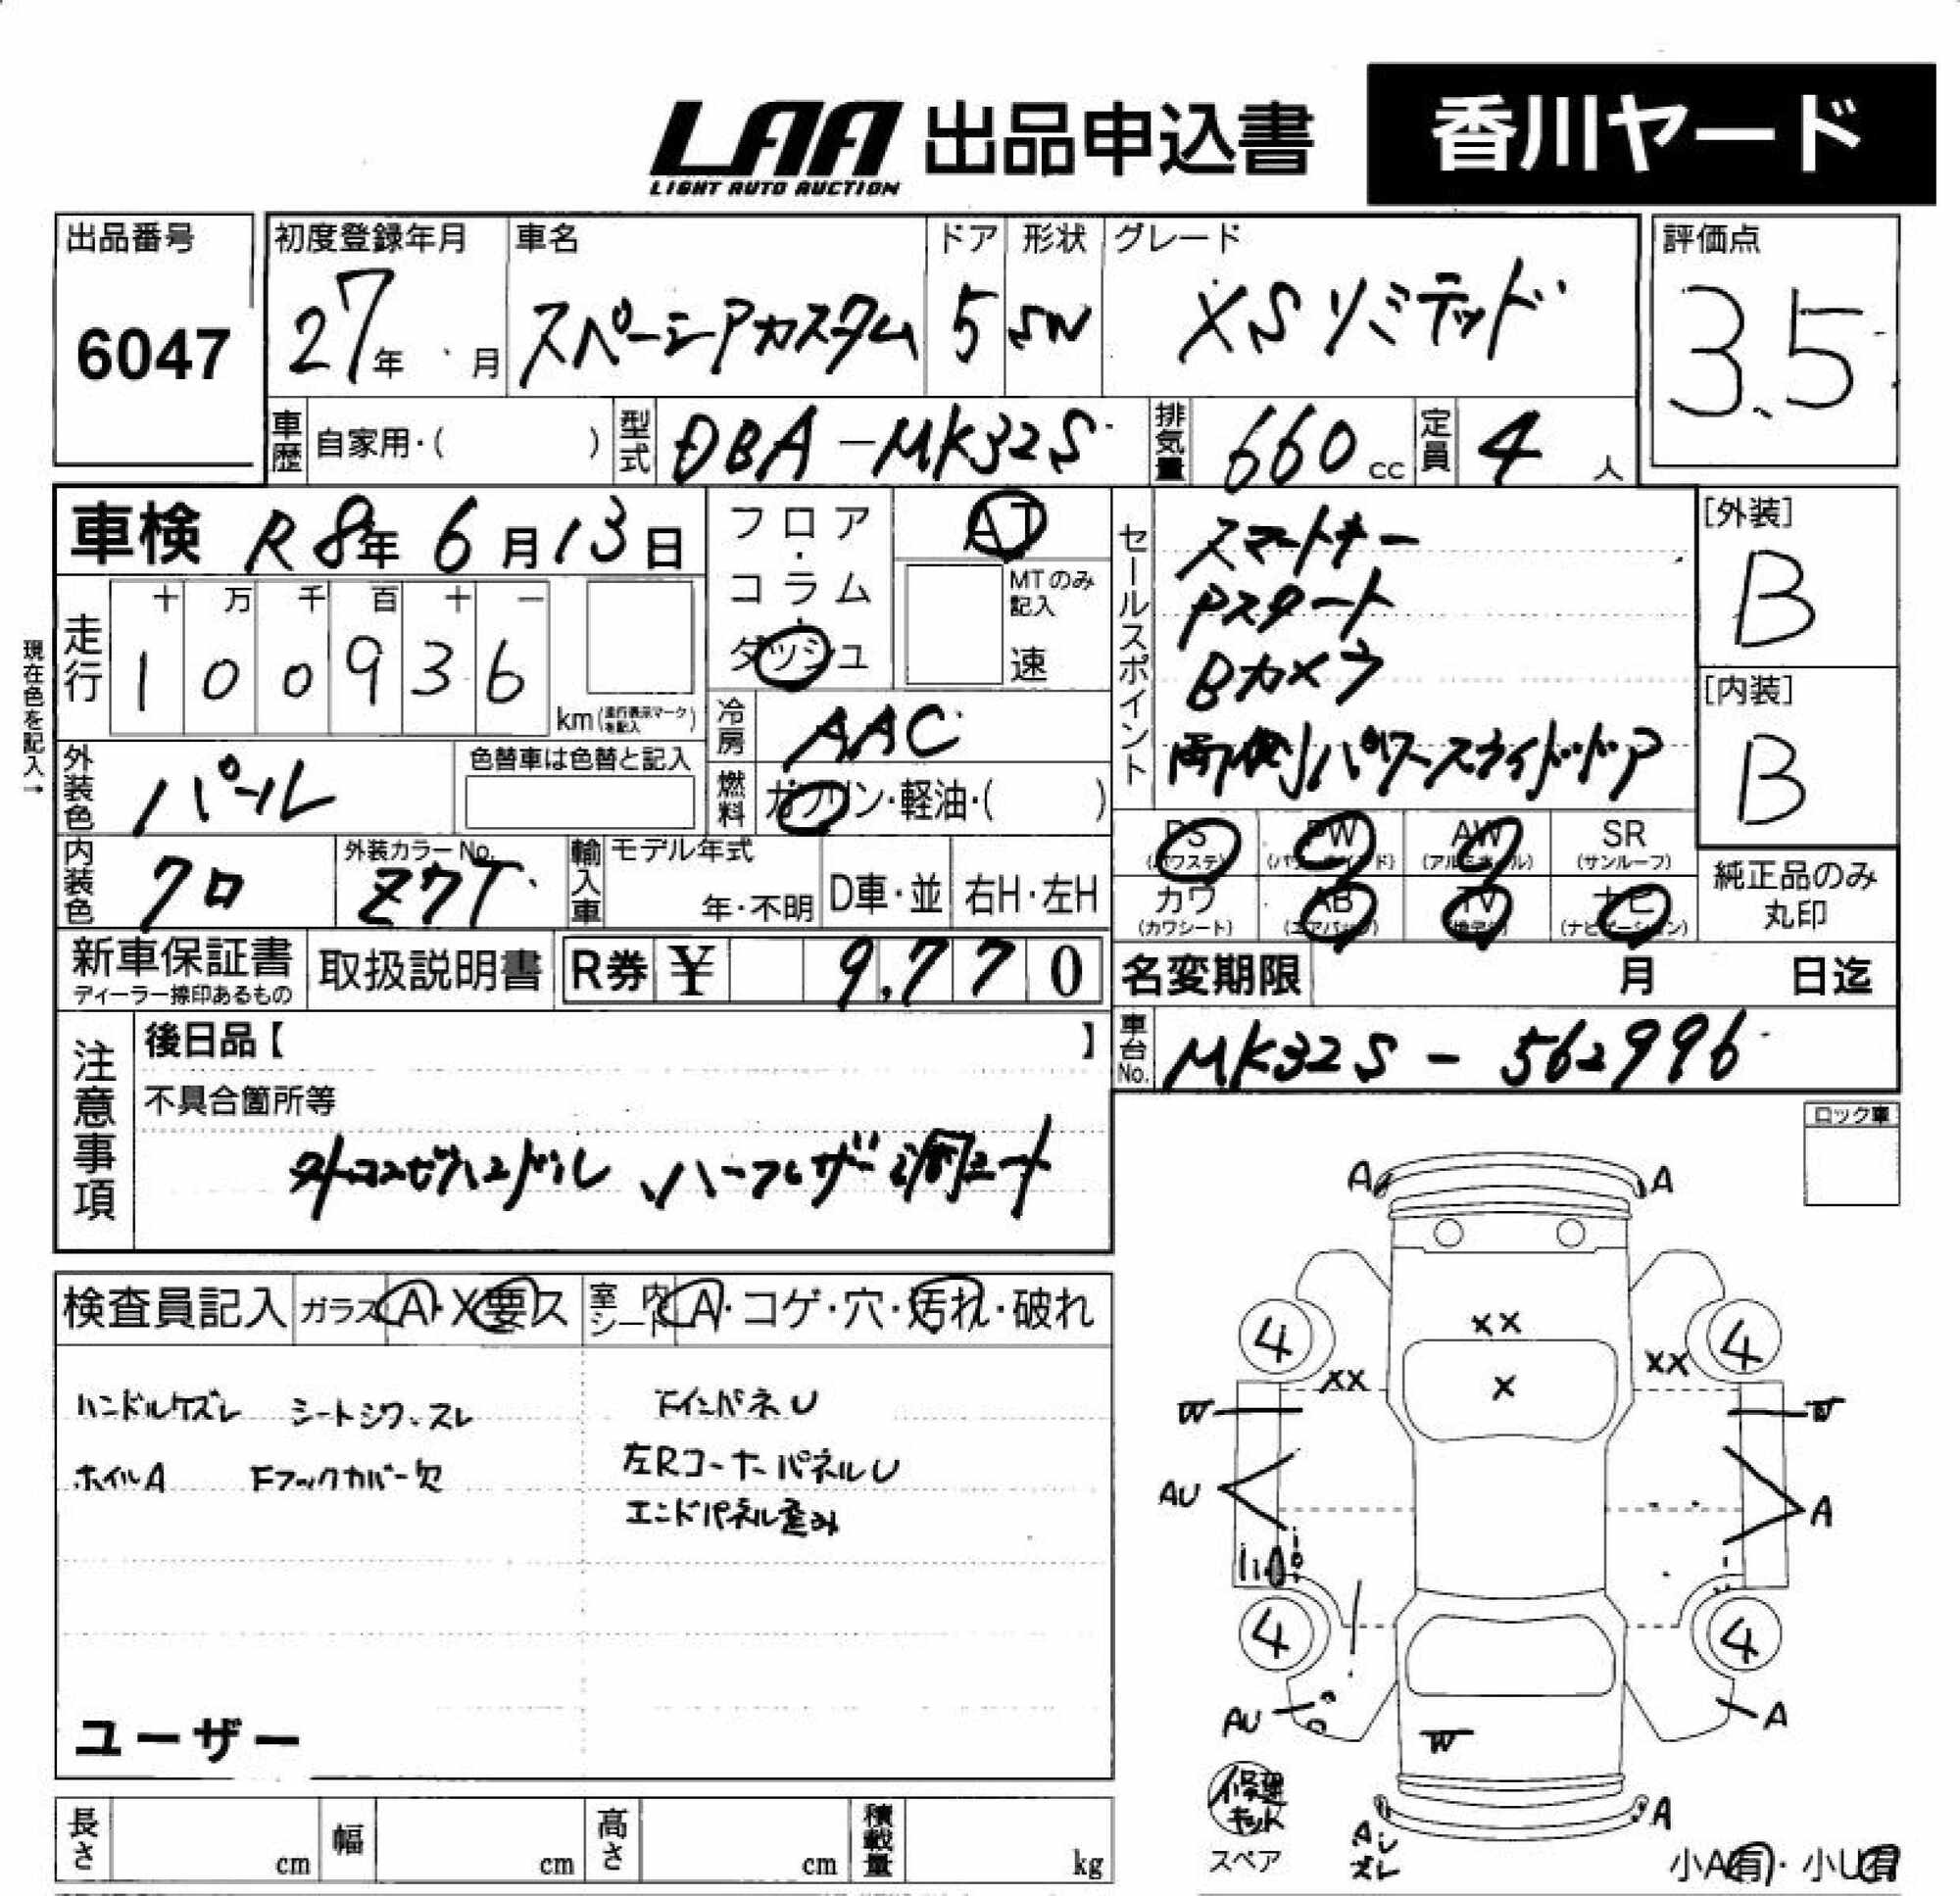 LAA 出品申込書 香川ヤード
LIGHT AUTO AUCTION
出品番号 初度登録年月 車名 ドア 形状 グレード 評価点
6047 27年 月 スペーシアカスタム 5 SW XSリミテッド 3.5
車歴 自家用・( ) 型式 DBA-MK32S 排気量 660cc 定員 4人
車検 R8年6月13日 フロア・コラム・ダッシュ AT
MTのみ記入 速
現在色を記入→
走行 十 万 千 百 十 一
1 0 0 9 3 6 km(走行表示マークを記入)
外装色 パール 色替車は色替と記入
冷房 AAC
燃料 ガソリン・軽油・( )
内装色 クロ 外装カラーNo. Z7T 輸入車 モデル年式 年・不明 D車・並 右H・左H
セールスポイント
スマートキー
Pスタート
Bカメラ
両側パワースライドドア
[外装]
B
[内装]
B
PS(パワステ) PW(パワーウインド) AW(アルミホイール) SR(サンルーフ)
カワ(カワシート) AB(エアバッグ) TV ナビ(ナビゲーション)
純正品のみ丸印
新車保証書 ディーラー捺印あるもの 取扱説明書 R券 ¥ 9,770
名変期限 月 日迄
車台No. MK32S-562996
注意事項 後日品【 】
不具合箇所等
ハーフレザー調シート
検査員記入 ガラス A・X要ス 室内シート A・コゲ・穴・汚れ・破れ
ハンドルケズレ シートシワ、スレ
ホイルA Fフックカバー欠
左RコーナーパネルU
エンドパネル歪み
ユーザー
ロック車
A A
4 XX 4
XX X XX
W W
AU A
4 4
AU A
W
修理キット
スペア
A
Aレ
ズレ
小A有・小U有
長さ cm 幅 cm 高さ cm 積載量 kg